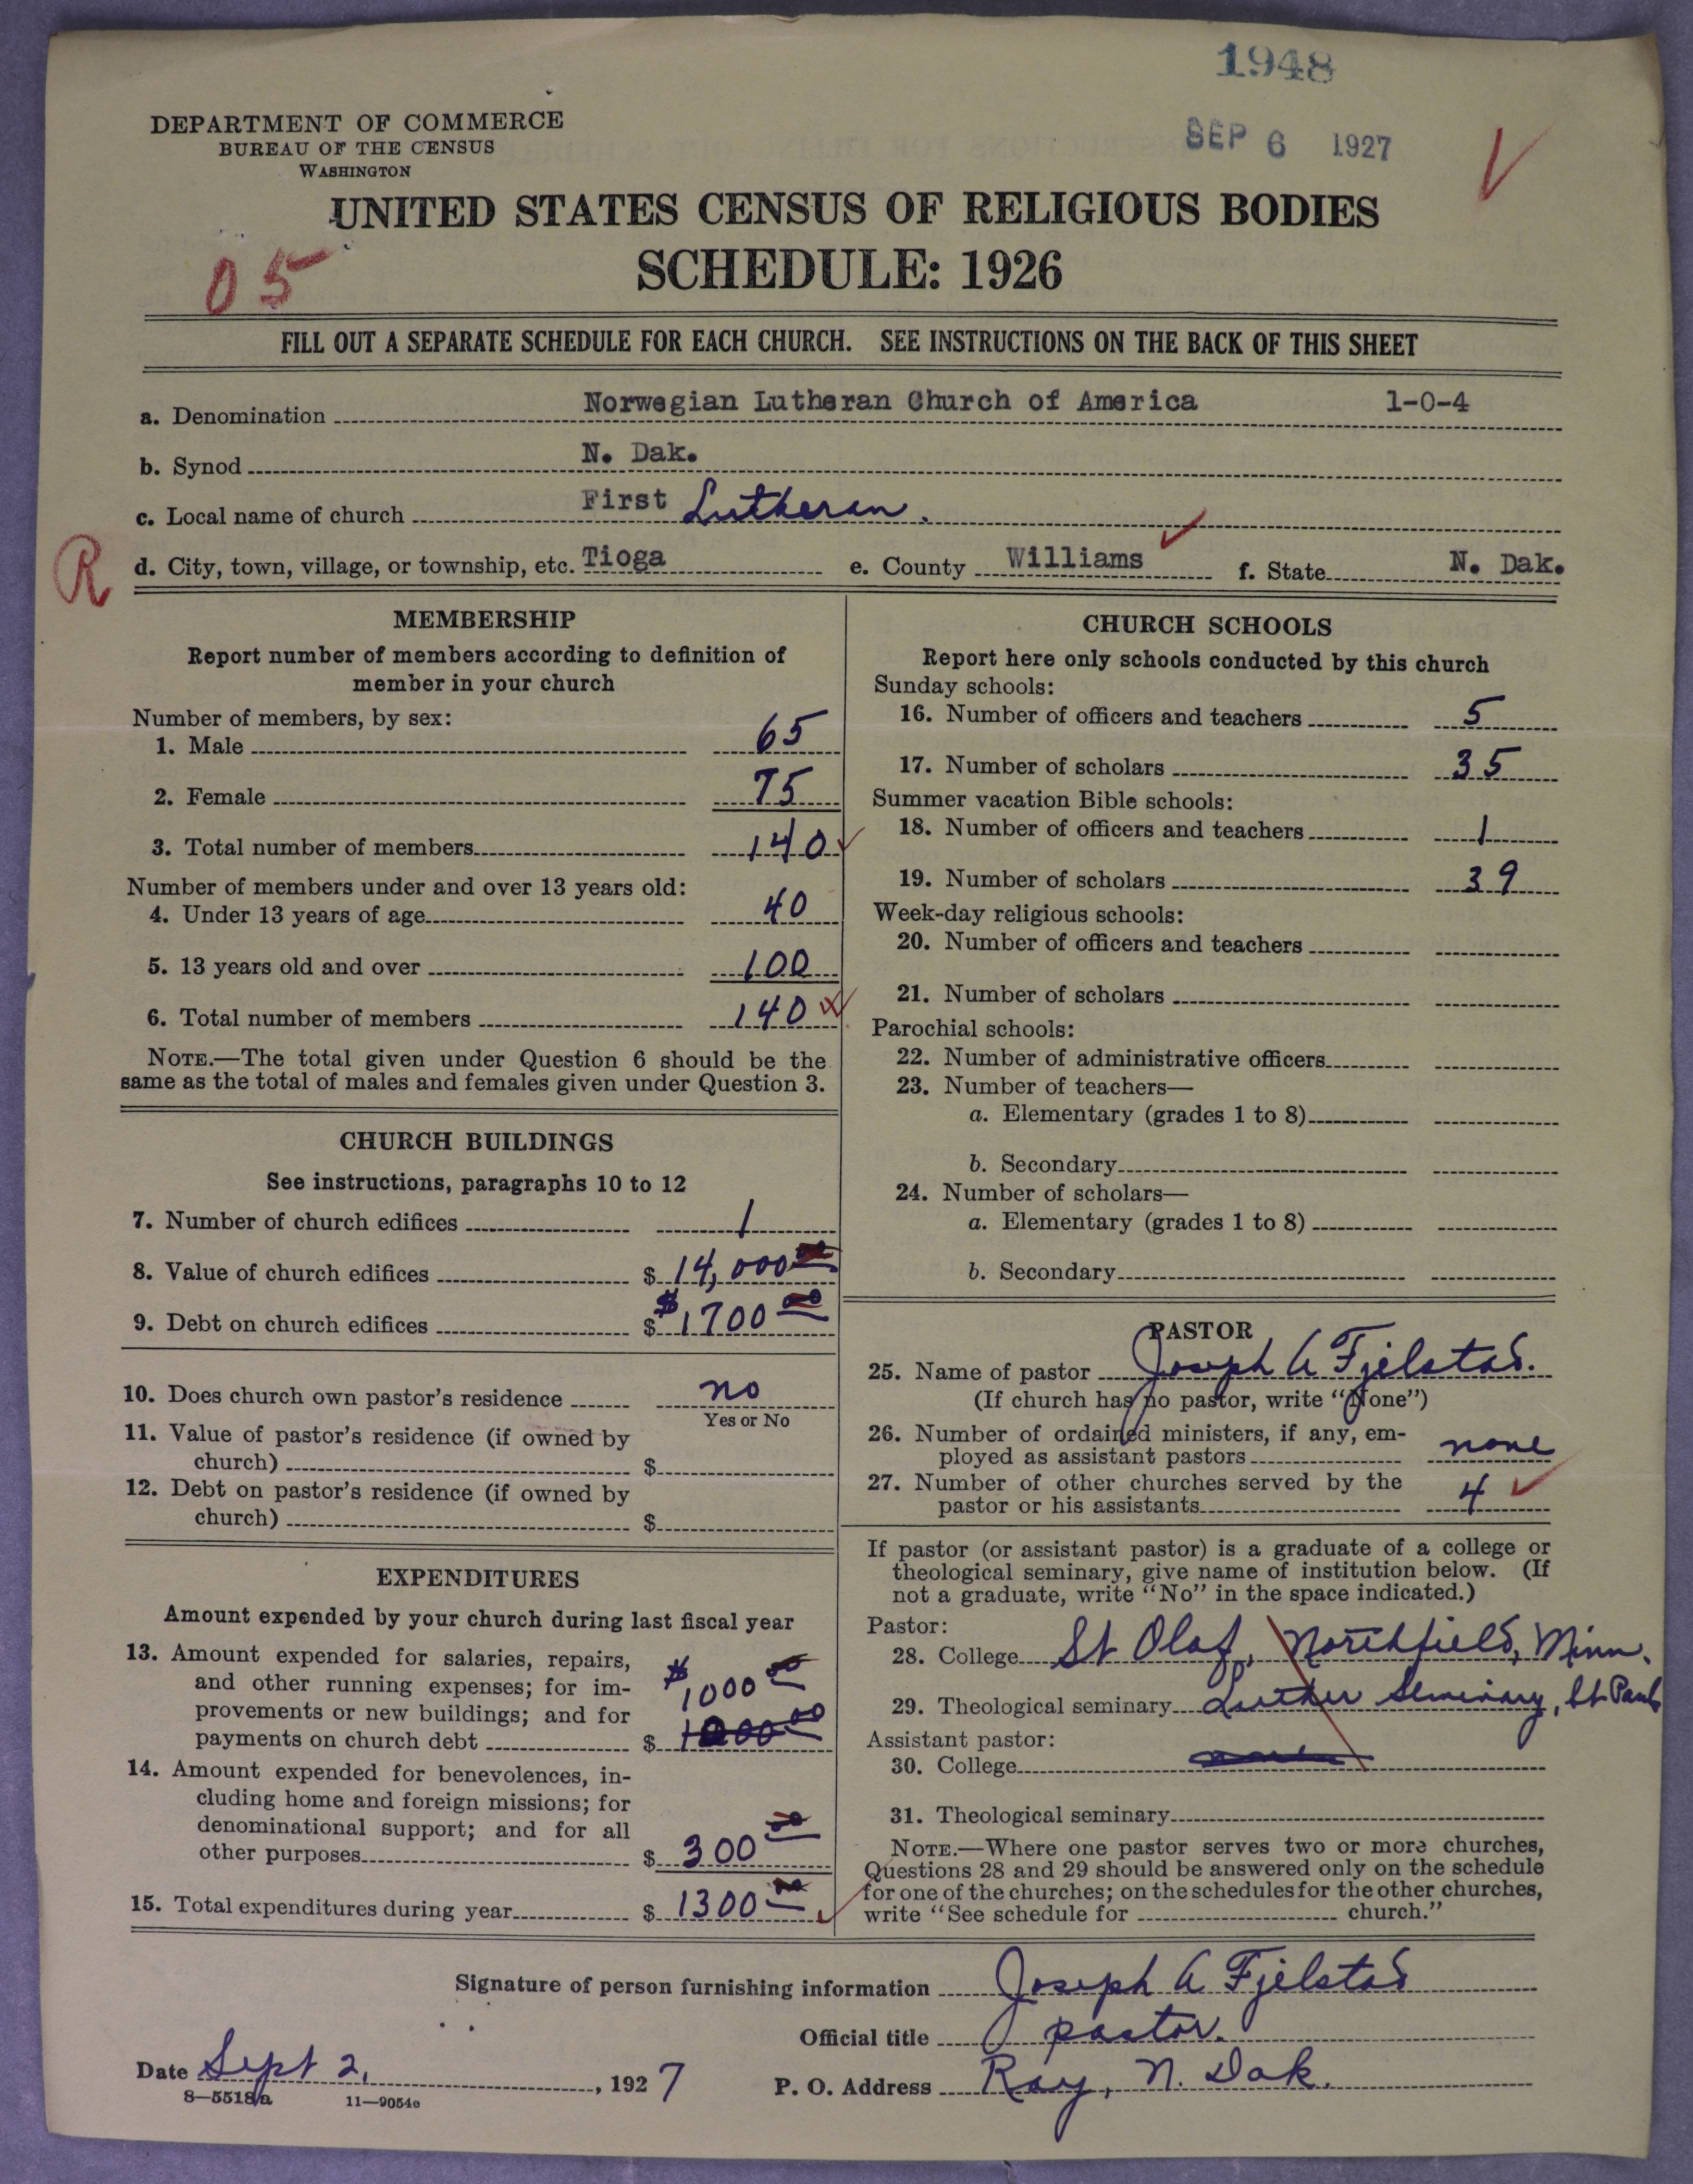 1948
SEP 6 1927
DEPARTMENT OF COMMERCE
BUREAU OF THE CENSUS
WASHINGTON
UNITED STATES CENSUS OF RELIGIOUS BODIES
SCHEDULE: 1926
05
FILL OUT A SEPARATE SCHEDULE FOR EACH CHURCH. SEE INSTRUCTIONS ON THE BACK OF THIS SHEET
a. Denomination Norwegian Lutheran Church of America 1-0-4
b. Synod N. Dak.
c. Local name of church First Lutheran.
R
d. City, town, village, or township, etc. Tioga e. County Williams f. State N. Dak.
MEMBERSHIP
Report number of members according to definition of
member in your church
Number of members, by sex:
1. Male 65
2. Female 75
3. Total number of members 140
Number of members under and over 13 years old:
4. Under 13 years of age 40
5. 13 years old and over 100
6. Total number of members 140
NOTE.—The total given under Question 6 should be the
same as the total of males and females given under Question 3.
CHURCH BUILDINGS
See instructions, paragraphs 10 to 12
7. Number of church edifices 1
8. Value of church edifices $ 14,000 00
9. Debt on church edifices $ $1700 00
10. Does church own pastor's residence no
Yes or No
11. Value of pastor's residence (if owned by
church) $
12. Debt on pastor's residence (if owned by
church) $
EXPENDITURES
Amount expended by your church during last fiscal year
13. Amount expended for salaries, repairs,
and other running expenses; for im-
provements or new buildings; and for
$1000 00
payments on church debt $
14. Amount expended for benevolences, in-
cluding home and foreign missions; for
denominational support; and for all
other purposes $ 300 00
15. Total expenditures during year $ 1300 00
CHURCH SCHOOLS
Report here only schools conducted by this church
Sunday schools:
16. Number of officers and teachers 5
17. Number of scholars 35
Summer vacation Bible schools:
18. Number of officers and teachers 1
19. Number of scholars 39
Week-day religious schools:
20. Number of officers and teachers
21. Number of scholars
Parochial schools:
22. Number of administrative officers
23. Number of teachers—
a. Elementary (grades 1 to 8)
b. Secondary
24. Number of scholars—
a. Elementary (grades 1 to 8)
b. Secondary
PASTOR
25. Name of pastor Joseph A Fjelstad.
(If church has no pastor, write "None")
26. Number of ordained ministers, if any, em-
ployed as assistant pastors none
27. Number of other churches served by the
pastor or his assistants 4
If pastor (or assistant pastor) is a graduate of a college or
theological seminary, give name of institution below. (If
not a graduate, write "No" in the space indicated.)
Pastor:
28. College St Olaf, Northfield, Minn.
29. Theological seminary Luther Seminary, St Paul
Assistant pastor:
30. College
31. Theological seminary
NOTE.—Where one pastor serves two or more churches,
Questions 28 and 29 should be answered only on the schedule
for one of the churches; on the schedules for the other churches,
write "See schedule for church."
Signature of person furnishing information Joseph A Fjelstad
Official title pastor.
Date Sept 2, , 1927
P. O. Address Ray, N. Dak.
8—5518a 11—9054e